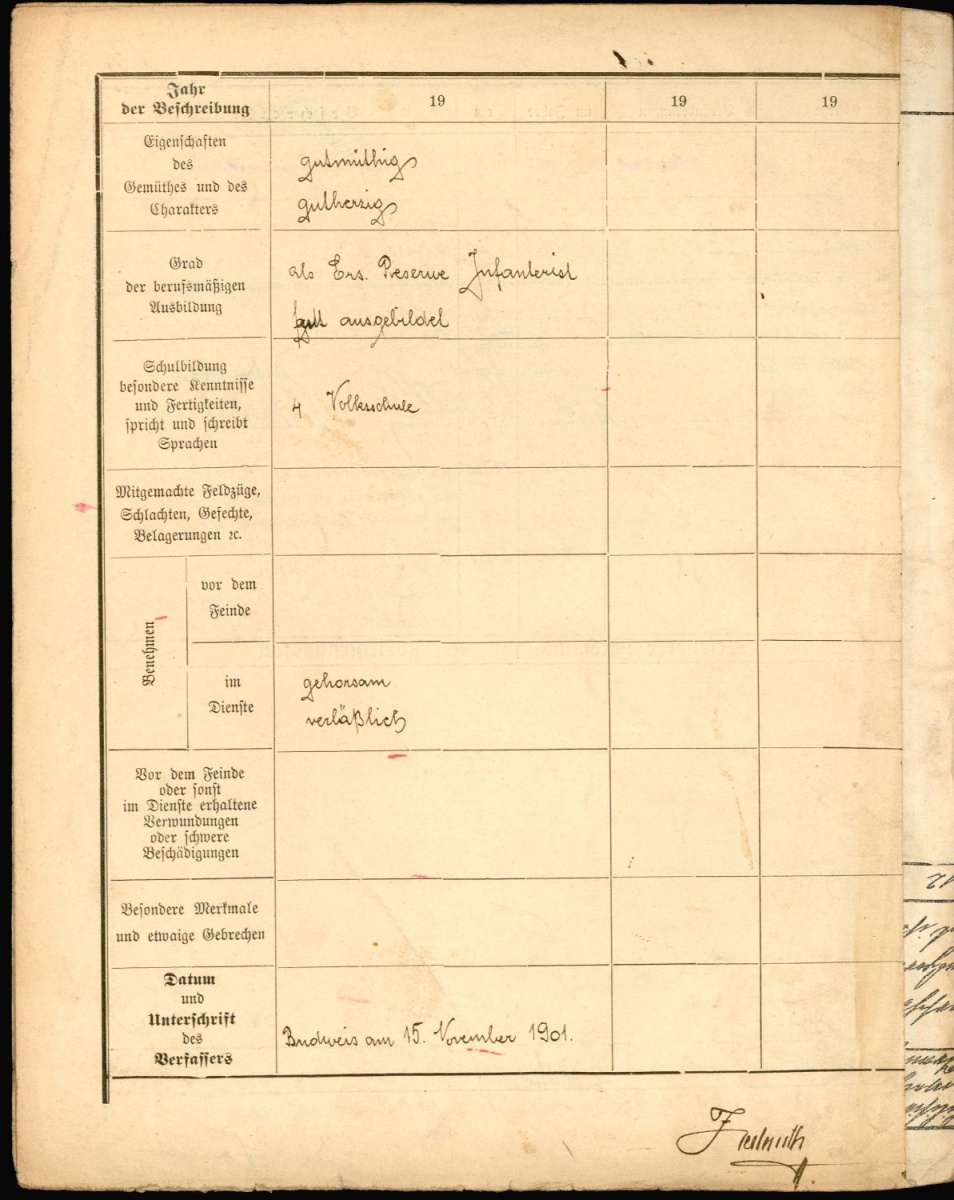 Jahr
der Beschreibung
19
19
19
Eigenschaften
des
Gemüthes und des
Charakters
gutmüthig
gutherzig
Grad
der berufsmäßigen
Ausbildung
als Ers. Reserve Infanterist
gut ausgebildet
Schulbildung
besondere Kenntnisse
und Fertigkeiten,
spricht und schreibt
Sprachen
4 Volksschule
Mitgemachte Feldzüge,
Schlachten, Gefechte,
Belagerungen ꝛc.
Benehmen
vor dem
Feinde
im
Dienste
gehorsam
verläßlich
Vor dem Feinde
oder sonst
im Dienste erhaltene
Verwundungen
oder schwere
Beschädigungen
Besondere Merkmale
und etwaige Gebrechen
Datum
und
Unterschrift
des
Verfassers
Budweis am 15. November 1901.